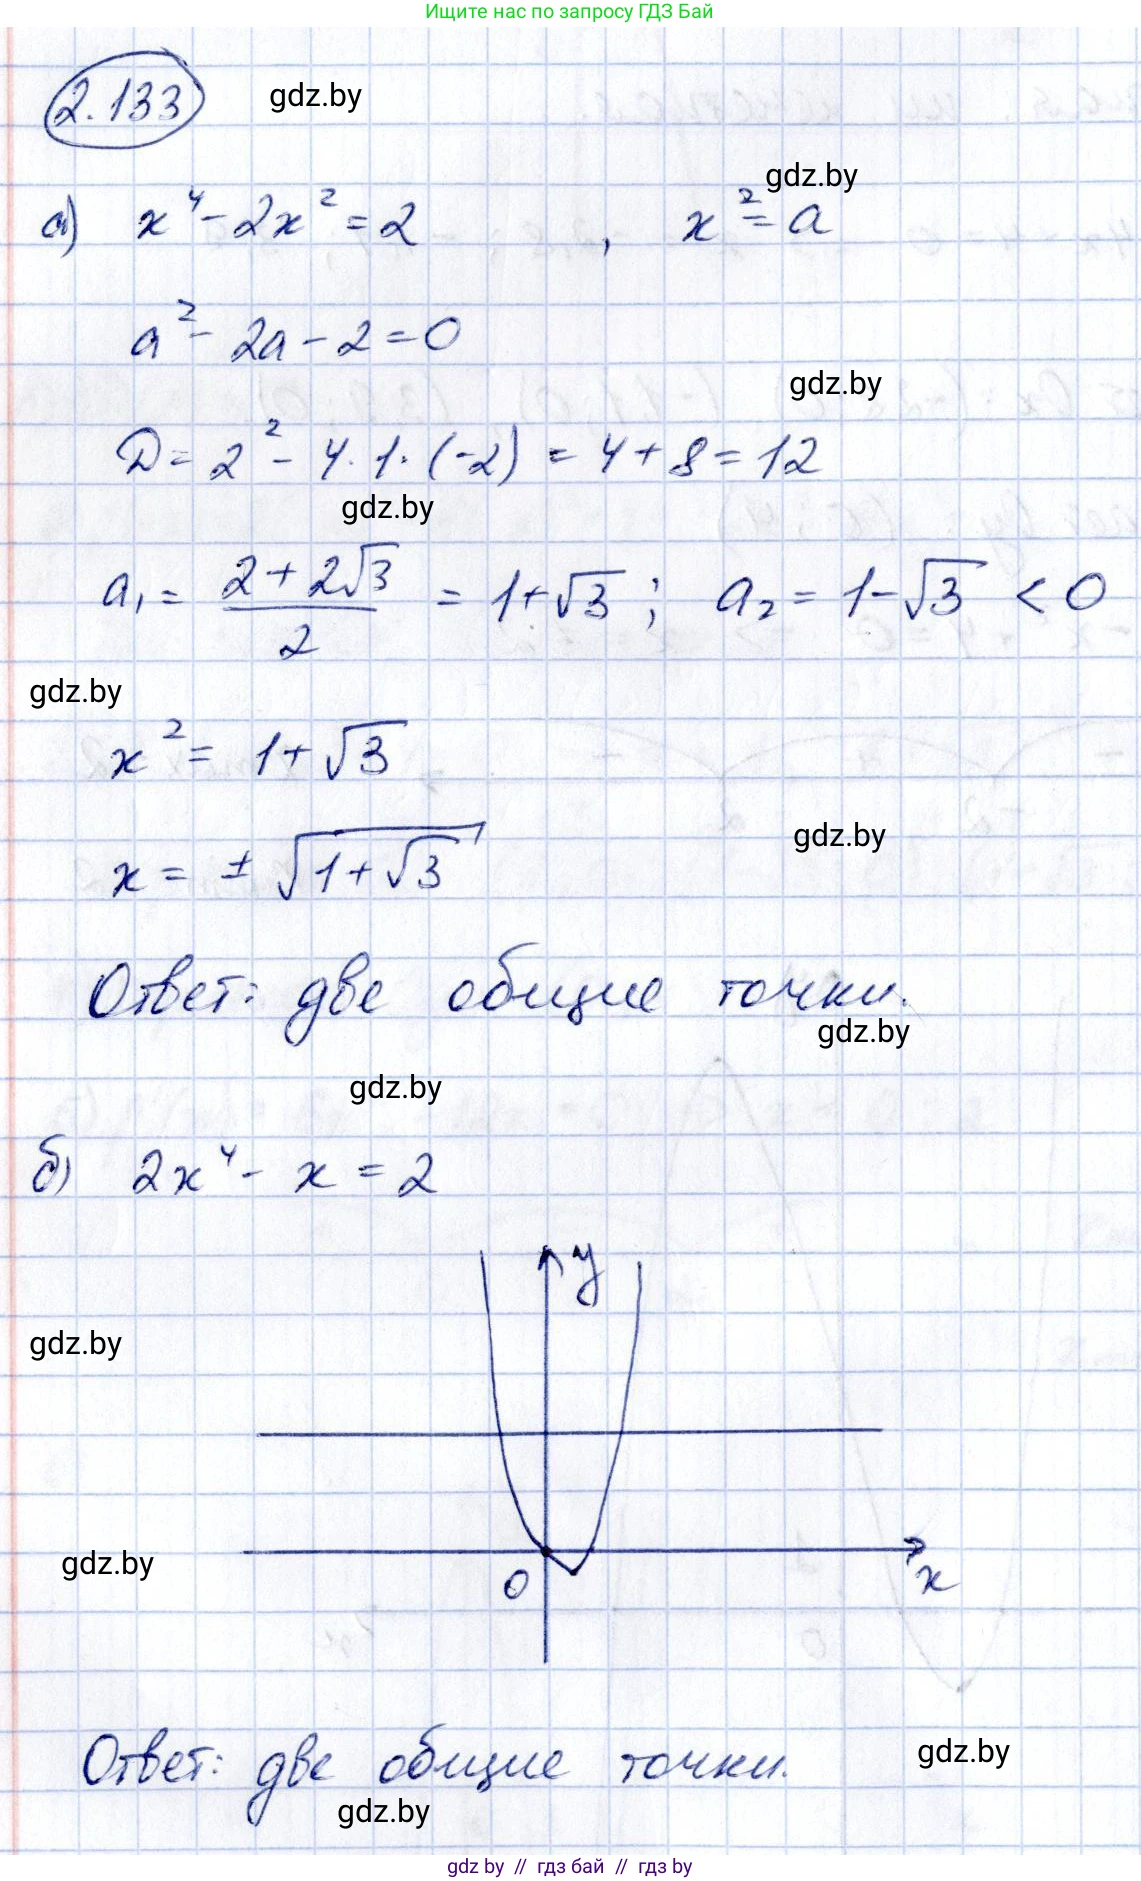 Ищите нас по запросу ГДЗ Бай
2.133 gdz.by
gdz.by
а) x⁴ - 2x² = 2 , x² = a
a² - 2a - 2 = 0
gdz.by
D = 2² - 4 · 1 · (-2) = 4 + 8 = 12
gdz.by
a₁ = (2 + 2√3)/2 = 1 + √3 ; a₂ = 1 - √3 < 0
gdz.by
x² = 1 + √3
gdz.by
x = ± √(1 + √3)
Ответ: две общие точки.
gdz.by
gdz.by
б) 2x⁴ - x = 2
y
gdz.by
gdz.by
0
x
Ответ: две общие точки.
gdz.by
gdz.by
gdz by // гдз бай // гдз by